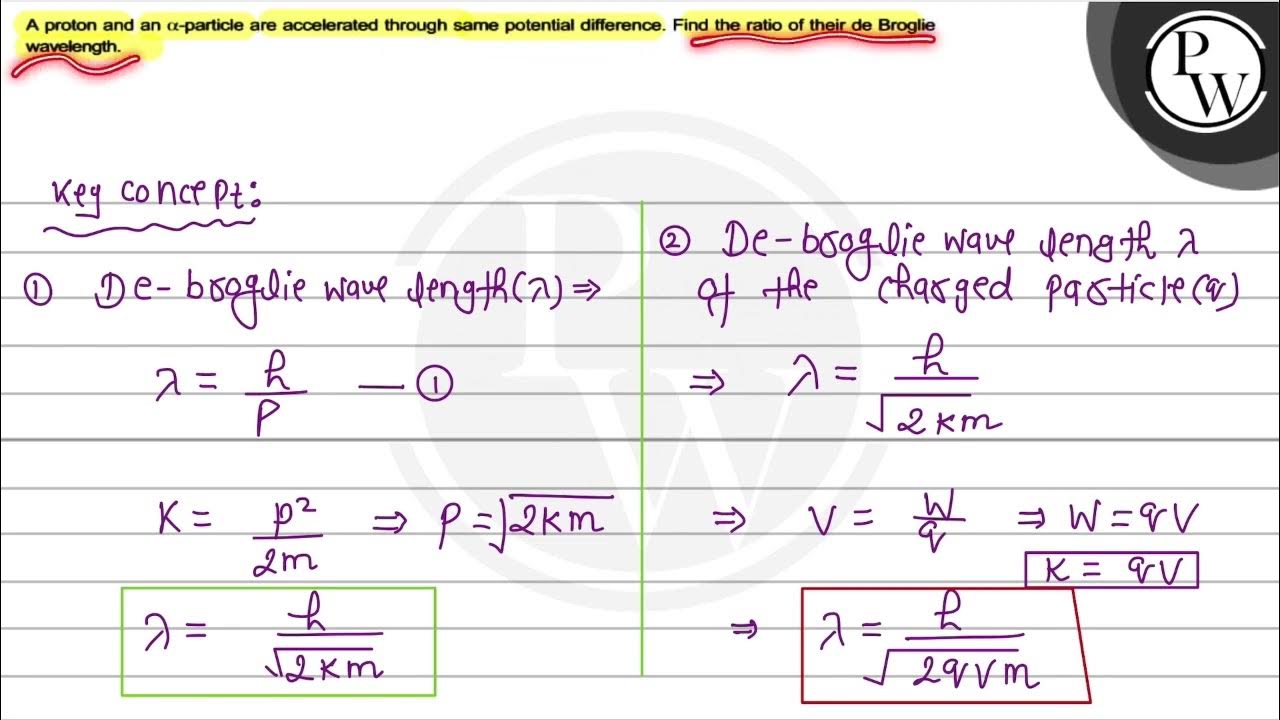 A proton and an α-particle are accelerated through same potential difference. Find the ratio of their de Broglie
wavelength.
PW
PW
Key concept:
① De-broglie wave length(λ) ⇒
λ = h/P — ①
K = p²/2m ⇒ P = √2Km
λ = h/√2Km
② De-broglie wave length λ
of the charged particle(q)
⇒ λ = h/√2Km
⇒ V = W/q ⇒ W = qV
K = qV
⇒ λ = h/√2qVm